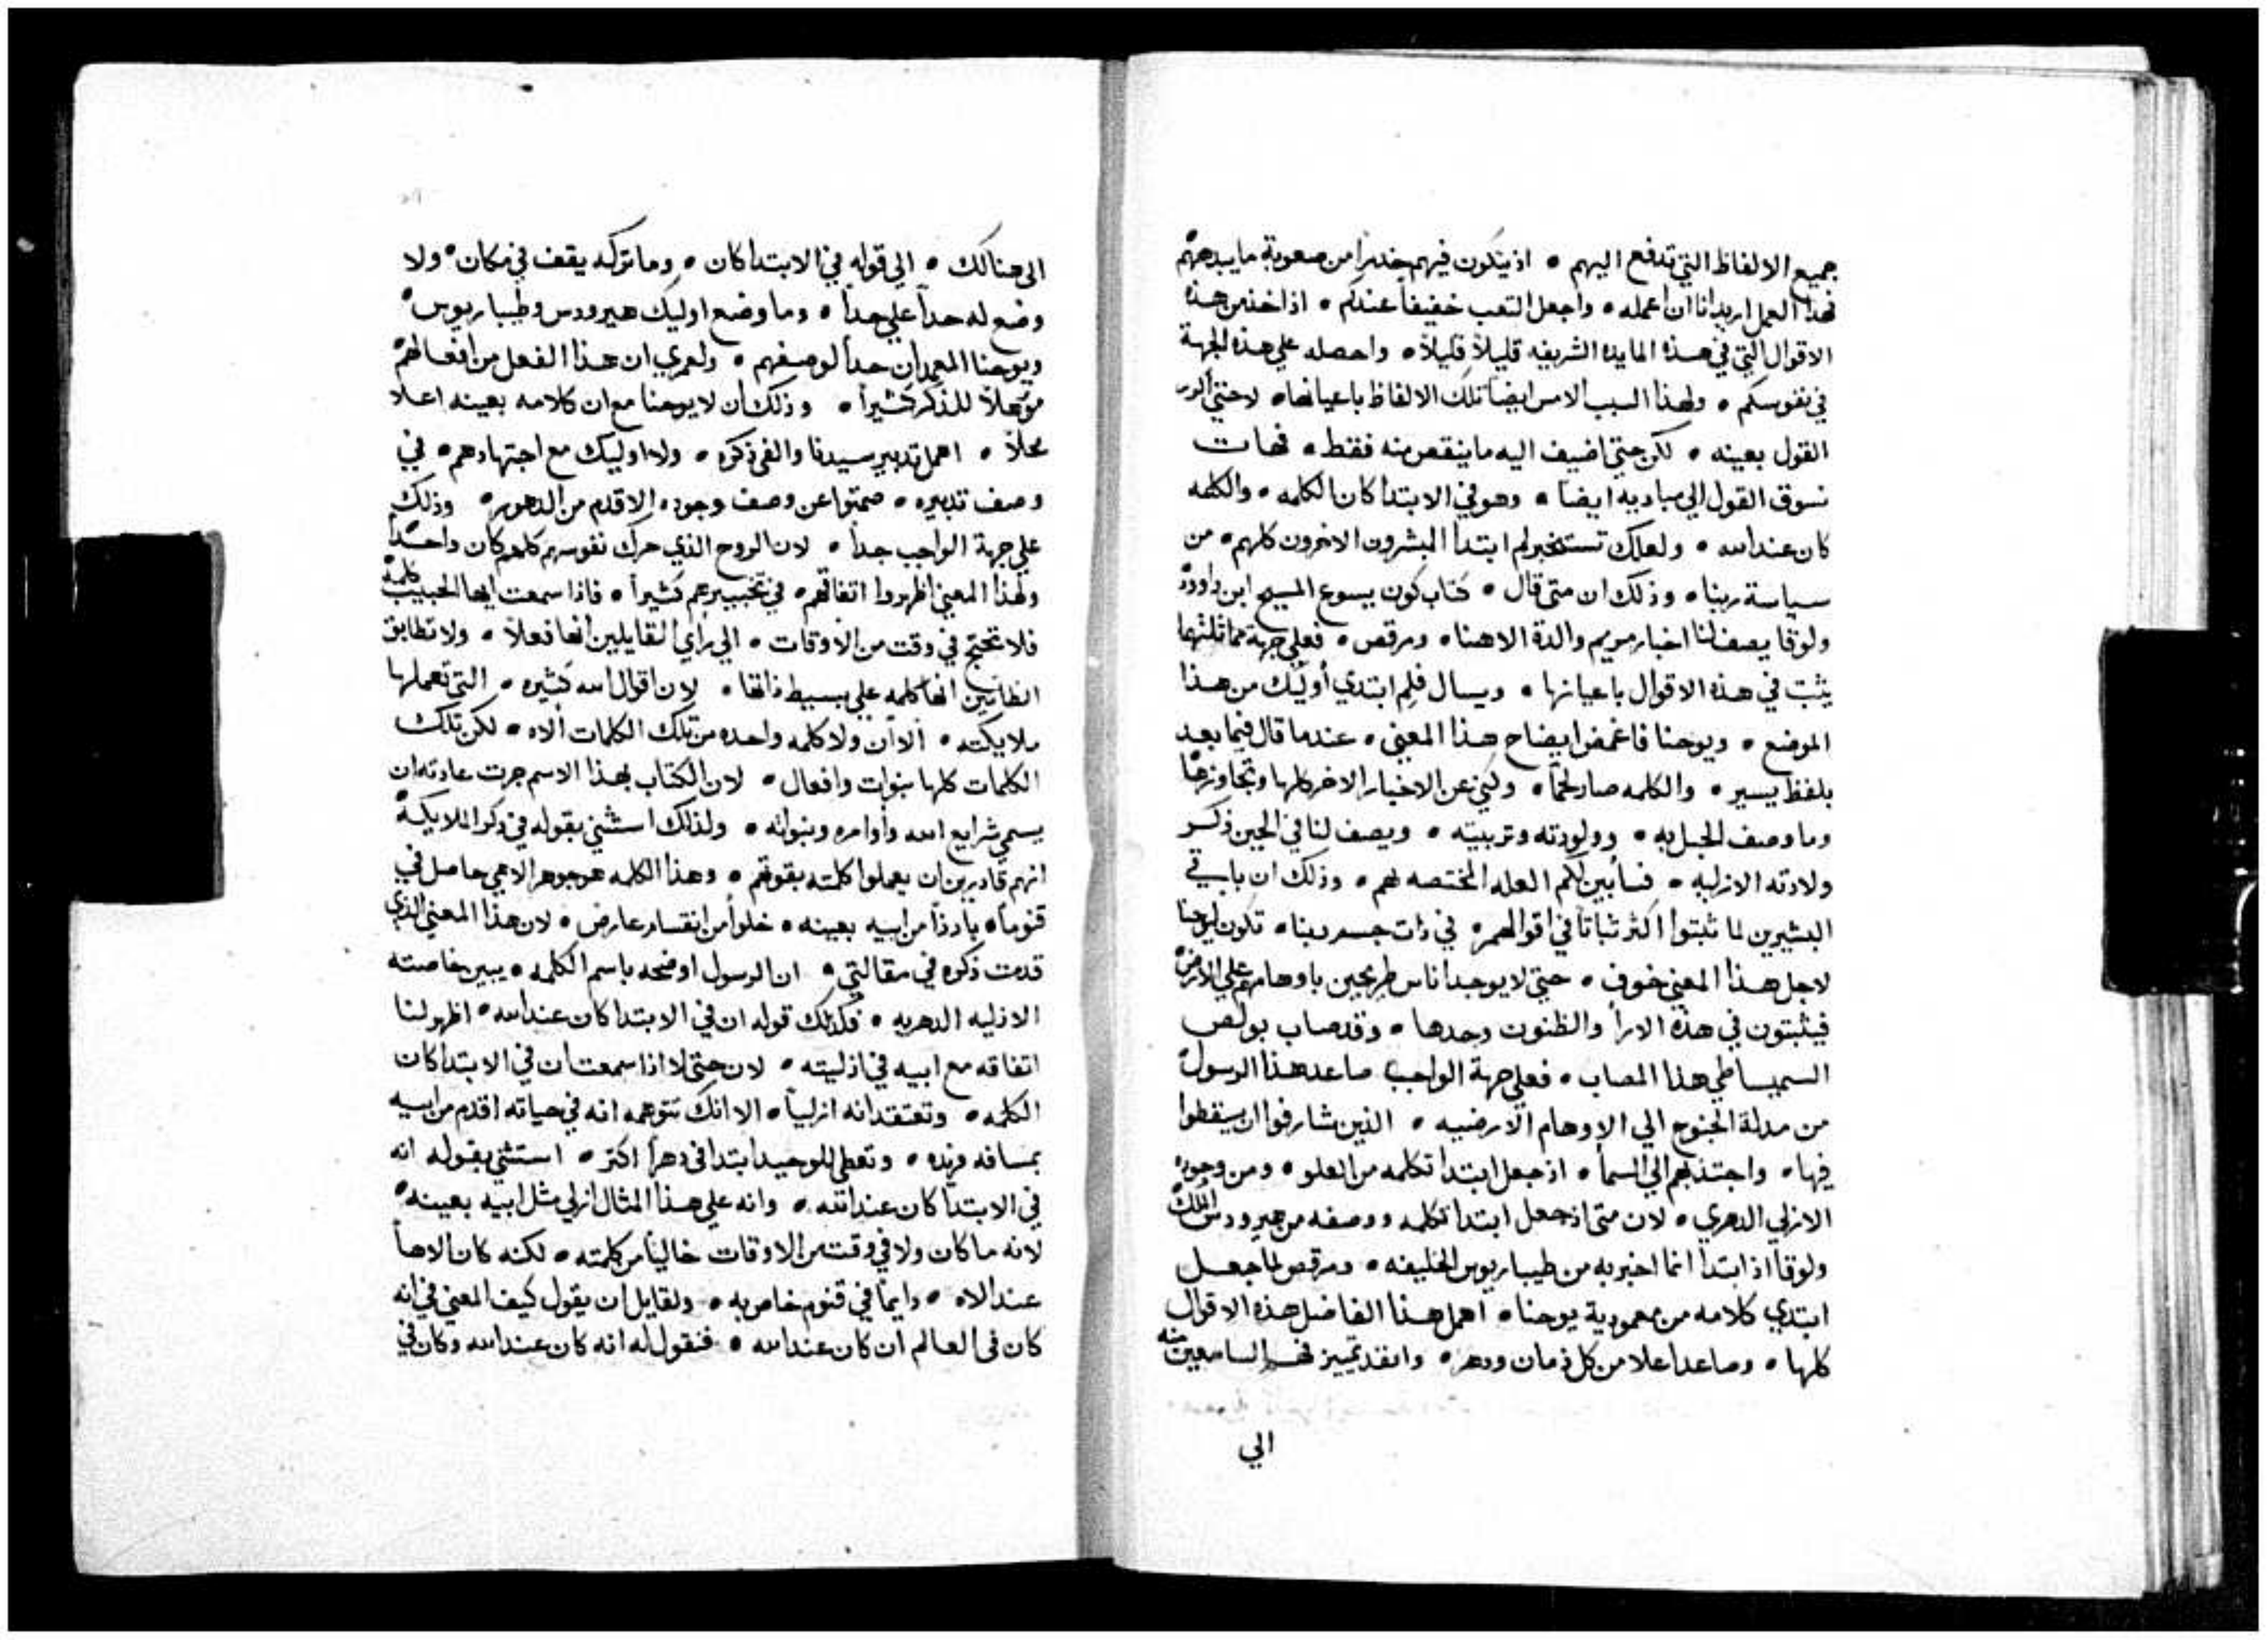 جميع الالفاظ التي تدفع اليهم • اذ يتكون فيهم خدرًا من صعوبة ما يبدههم
فهذا العمل اريد انا ان اعمله • واجعل التعب خفيفاً عندكم • اذا اخذتم هذه
الاقوال التي في هذه المايده الشريفه قليلاً قليلاً • واحصله علي هذه الجهة
في نفوسكم • ولهذا السبب الامس ايضاً تلك الالفاظ باعيانها • لا حتي
القول بعينه • لكن حتي اضيف اليه ما ينقص منه فقط • فهات
نسوق القول الي مباديه ايضاً • وهو في الابتدا كان الكلمه • والكلمه
كان عند الله • ولعلك تستخبر لم ابتدا المبشرون الاخرون كلهم • من
سياسة ربنا • وذلك ان متي قال • كتاب كون يسوع المسيح ابن داوود
ولوقا يصف لنا اخبار مريم والدة الاهنا • ومرقص • فعلي جهة مماثلتهما
يثبت في هذه الاقوال باعيانها • ويسال فلم ابتدي أوليك من هذا
الموضع • ويوحنا فاغمض ايضاح هذا المعني • عندما قال فيما بعد
بلفظ يسير • والكلمه صار لحماً • ولني عن الاخبار الاخر كلها وتجاوزها
وما وصف الحبل به • وولودته وتربيته • ويصف لنا في الحين ذكر
ولادته الازليه • فسأبين لكم العله المختصه لهم • وذلك ان باقي
البشيرين لما ثبتوا اكثر ثباتاً في اقوالهم • في ذات جسد ربنا • تكون ليوحنا
لاجل هذا المعني خوف • حتي لا يوجد اناس طريحين باوهامهم علي الارض
فيثبتون في هذه الارأ والظنون وحدها • وقد صاب بولص
السميساطي هذا المصاب • فعلي جهة الواجب صاعد هذا الرسول
من مدلة الجنوح الي الاوهام الارضيه • الذين شارفوا ان يسقطوا
فيها • واجتذبهم الي السمأ • اذ جعل ابتدا تكلمه من العلو • ومن وجوده
الازلي الدهري • لان متي اذ جعل ابتدا تكلمه ووصفه من هيرودس الملك
ولوقا اذ ابتدا انما اخبر به من طيباريوس الخليفه • ومرقص لما جعل
ابتدي كلامه من معمودية يوحنا • اهمل هذا الفاضل هذه الاقوال
كلها • وصاعد اعلا من كل زمان ودهر • وانفد تمييز فهم السامعين منه
الي
الى هنالك • الي قوله في الابتدا كان • وما تركه يقف في مكان • ولا
وضع له حداً علي حداً • وما وضع اوليك هيرودس وطيباريوس •
ويوحنا المعمدان حداً لوصفهم • ولعمري ان هذا الفعل من افعالهم
موهلاً للذكر كثيراً • وذلك ان لا يوحنا مع ان كلامه بعينه اعلا
محلاً • اهمل تدبير سيدنا والغى ذكره • ولا اوليك مع اجتهادهم • في
وصف تدبيره • صمتوا عن وصف وجوده الاقدم من الدهور • وذلك
علي جهة الواجب جداً • لان الروح الذي حرك نفوسهم كلهم كان واحداً
ولهذا المعني اظهروا اتفاقهم • في تخبيرهم كثيراً • فاذا سمعت ايها الحبيب كلمة
فلا تحتج في وقت من الاوقات • الي رأي القايلين انها فعلاً • ولا تطابق
الظانين انها كلمه علي بسيط ذاتها • لان اقوال الله كثيره • التي تعملها
ملايكته • الا أن ولا كلمه واحده من تلك الكلمات الاه • لكن تلك
الكلمات كلها نبوات وافعال • لان الكتاب بهذا الاسم جرت عادته ان
يسمي شرايع الله وأوامره ونبواته • ولذلك استثني بقوله في ذكر الملايكة
انهم قادرين ان يعملوا كلمته بقوتهم • وهذا الكلمه هو جوهر الاهي حاصل في
قنوماً • بارزاً من ابيه بعينه • خلواً من انقسام عارض • لان هذا المعني الذي
قدمت ذكره في مقالتي • ان الرسول اوضحه باسم الكلمه • يبين خاصته
الازليه الدهريه • فكذلك قوله ان في الابتدا كان عند الله • اظهر لنا
اتفاقه مع ابيه في ازليته • لان حتي لا اذا سمعت ان في الابتدا كان
الكلمه • وتعتقد انه ازلياً • الا انك تتوهمه انه في حياته اقدم من ابيه
بمسافه فرنده • وتعطي للوحيد ابتدا في دهراً اكثر • استثني بقوله انه
في الابتدا كان عند الله • وانه علي هذا المثال ازلي مثل ابيه بعينه •
لانه ما كان ولا في وقت من الاوقات خالياً من كلمته • لكنه كان الاهاً
عند الاه • دايماً في قنوم خاص به • ولقايل ان يقول كيف المعني في انه
كان في العالم ان كان عند الله • فنقول له انه كان عند الله وكان في